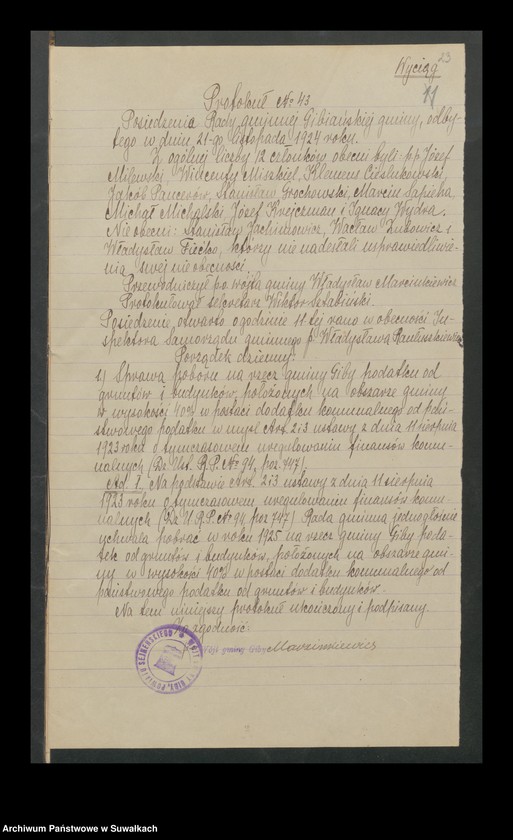 23
Wyciąg
11
Protokuł № 43
Posiedzenia Rady gminnej Gibiańskiej gminy, odby-
tego w dniu 21-go listopada 1924 roku.
Z ogólnej liczby 12 członków obecni byli: p.p. Józef
Milewski, Wincenty Miszkiel, Klemens Cieślukowski,
Jakób Pancerów, Stanisław Grochowski, Marcin Sapieha,
Michał Michalski, Józef Krejczman i Ignacy Wydra.
Nieobecni: Stanisław Jachimowicz, Wacław Żukowicz i
Władysław Fiećko, którzy nie nadesłali usprawiedliwie-
nia swej nieobecności.
Przewodniczył p.o. wójta gminy Władysław Marcinkiewicz
Protokułował sekretarz Wiktor
Posiedzenie otwarto o godzinie 11-tej rano w obecności In-
spektora Samorządu gminnego p. Władysława
Porządek dzienny:
1.) Sprawa poboru na rzecz gminy Giby podatku od
gruntów i budynków, położonych na obszarze gminy
w wysokości 40% w postaci dodatku komunalnego od pań-
stwowego podatku w myśl Art. 2 i 3 ustawy z dnia 11 sierpnia
1923 roku o tymczasowem uregulowaniu finansów komu-
nalnych (Dz. Ust. R.P. № 94, poz. 747).
Ad. 1. Na podstawie Art. 2 i 3 ustawy z dnia 11 sierpnia
1923 roku o tymczasowem uregulowaniu finansów komu-
nalnych (Dz. U. R.P. № 94 poz 747) Rada gminna jednogłośnie
uchwala pobrać w roku 1925 na rzecz gminy Giby poda-
tek od gruntów i budynków, położonych na obszarze gmi-
ny w wysokości 40% w postaci dodatku komunalnego od
państwowego podatku od gruntów i budynków.
Na tem niniejszy protokuł ukończony i podpisany.
Za zgodność:
Wójt gminy Giby Marcinkiewicz
Archiwum Państwowe w Suwałkach